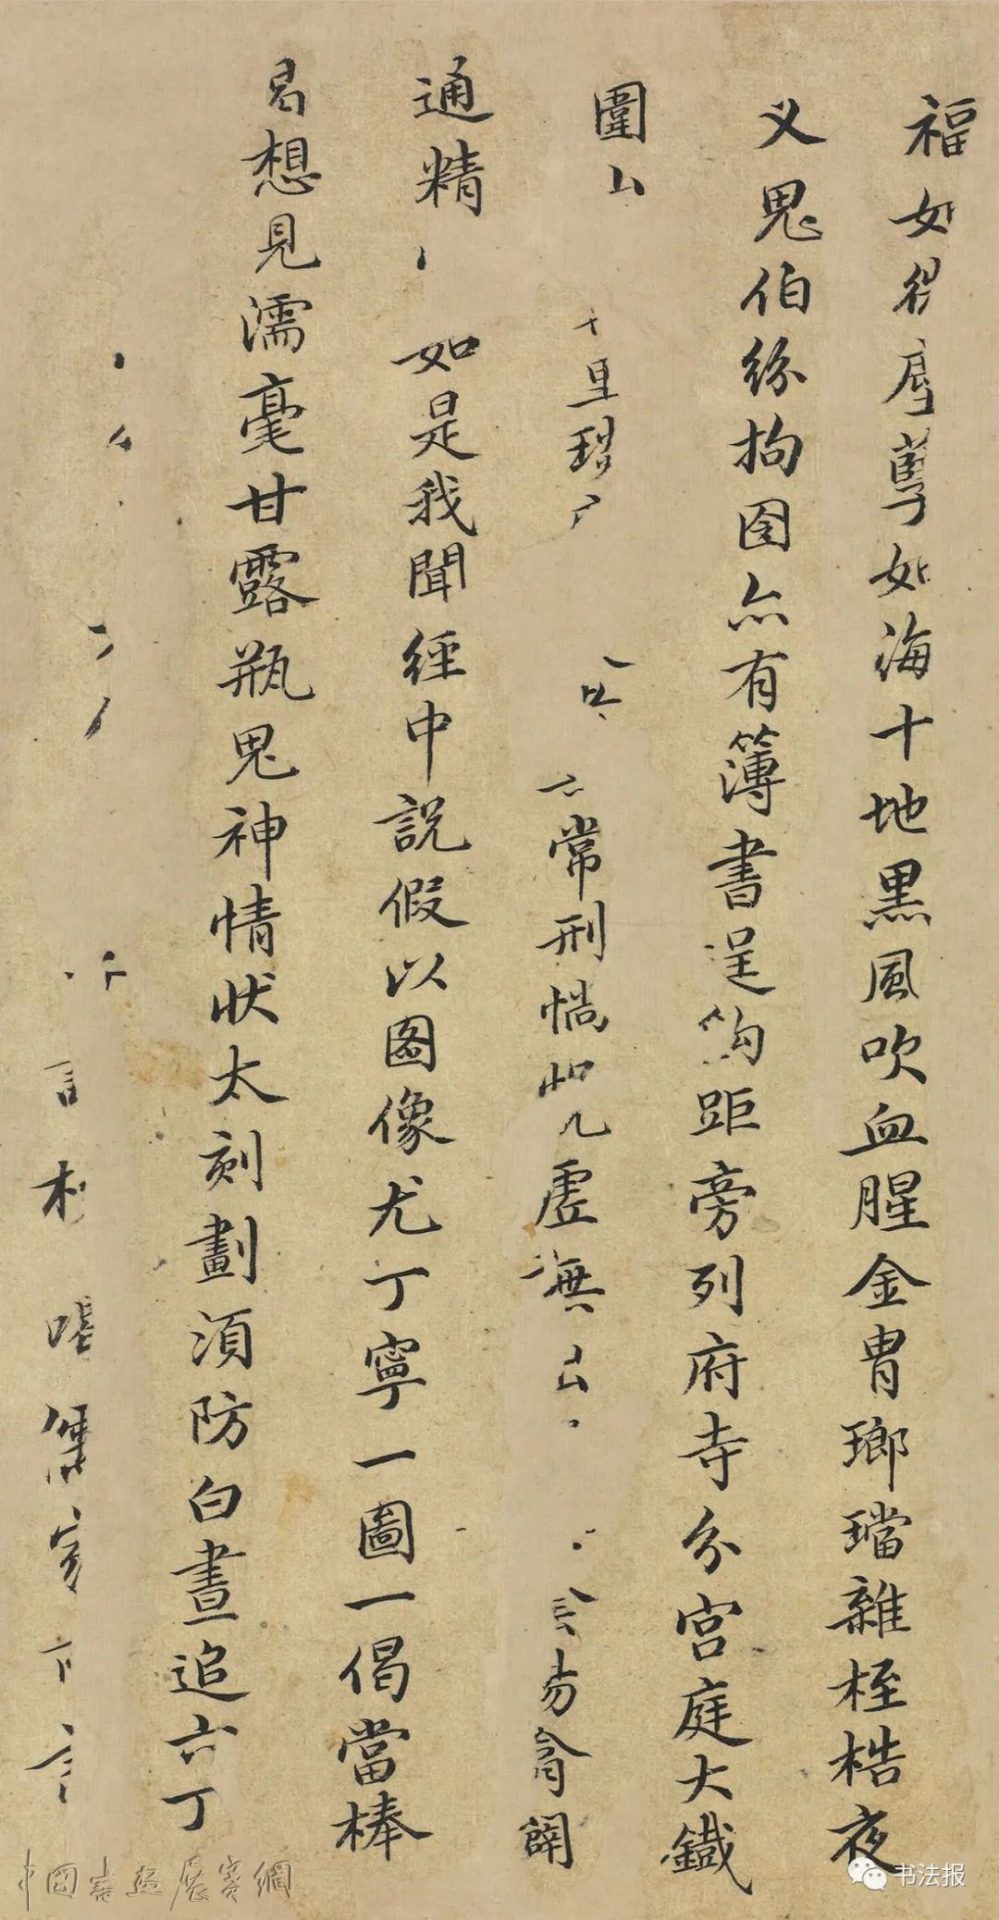 福如 孽如海十地黑風吹血腥金胄瑯璫雜桎梏夜
义鬼伯紛拘囹亦有簿書逞鈎距旁列府寺分宮庭大鐵
圍山 十里 常刑惝怳 虛無 翕闢
通精 如是我聞經中說假以圖像尤丁寧一圖一偈當棒
曷想見濡毫甘露瓶鬼神情狀太刻劃須防白晝追六丁
言
中國書法展賽網
书法报